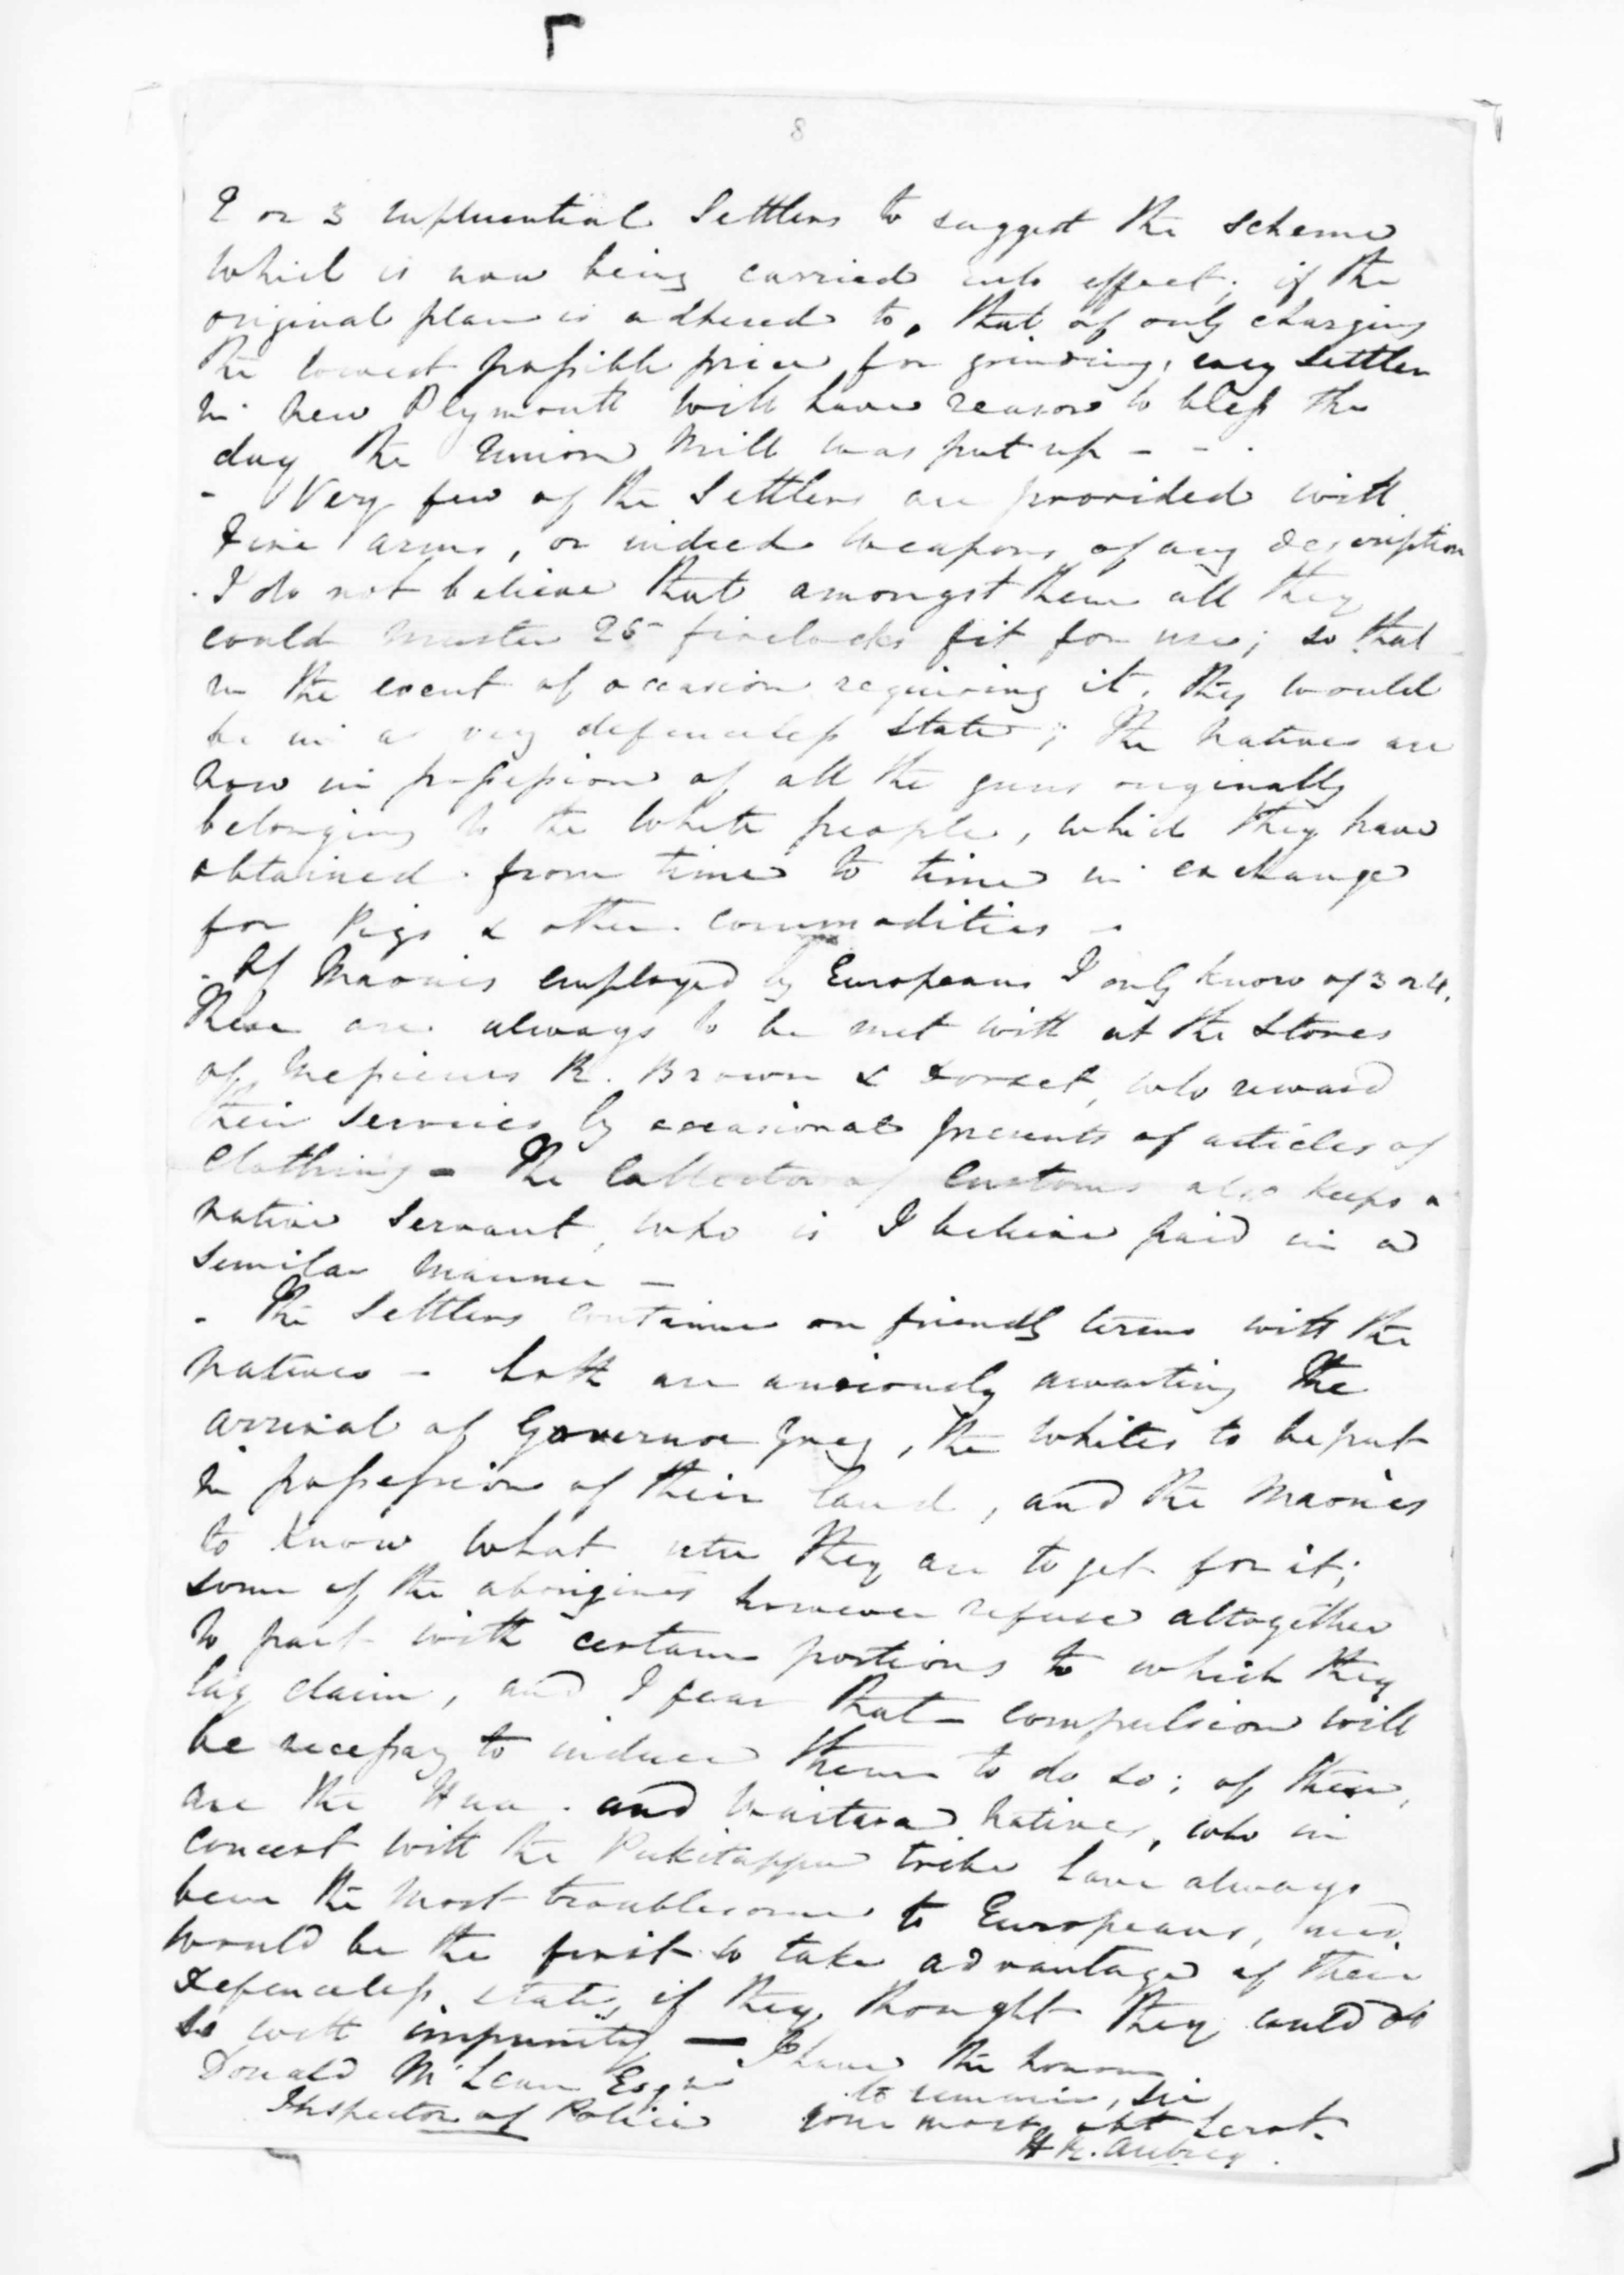 8
2 or 3 influential Settlers to suggest the scheme
which is now being carried into effect; if the
original plan is adhered to, that of only charging
the lowest possible price for grinding, every settler
in New Plymouth will have reason to bless the
day the Union Mill was put up - - .
- Very few of the Settlers are provided with
Fire arms, or indeed weapons of any description
. I do not believe that amongst them all they
could muster 25 firelocks fit for use; so that
in the event of occasion requiring it, they would
be in a very defenceless state; the Natives are
now in possession of all the guns originally
belonging to the White people, which they have
obtained from time to time in exchange
for Pigs & other commodities -
- Of Maories employed by Europeans I only know of 3 or 4.
These are always to be met with at the Stores
of Messieurs R. Brown & Dorset, who reward
their services by occasional presents of articles of
Clothing - The Collector of Customs also keeps a
native Servant, who is I believe paid in a
similar manner -
- The Settlers continue on friendly terms with the
Natives - both are anxiously awaiting the
arrival of Governor Grey, the whites to be put
in possession of their land, and the Maories
to know what utu they are to get for it;
some of the aborigines however refuse altogether
to part with certain portions to which they
lay claim, and I fear that compulsion will
be necessary to induce them to do so; of these,
are the Hua and Waitera Natives, who in
concert with the Pukitappu tribe have always
been the most troublesome to Europeans, and
would be the first to take advantage of their
defenceless state, if they thought they could do
so with impunity - I have the honor
to remain, Sir
Your most obt Servt.
H R. Aubrey.
Donald McLean Esqre
Inspector of Police